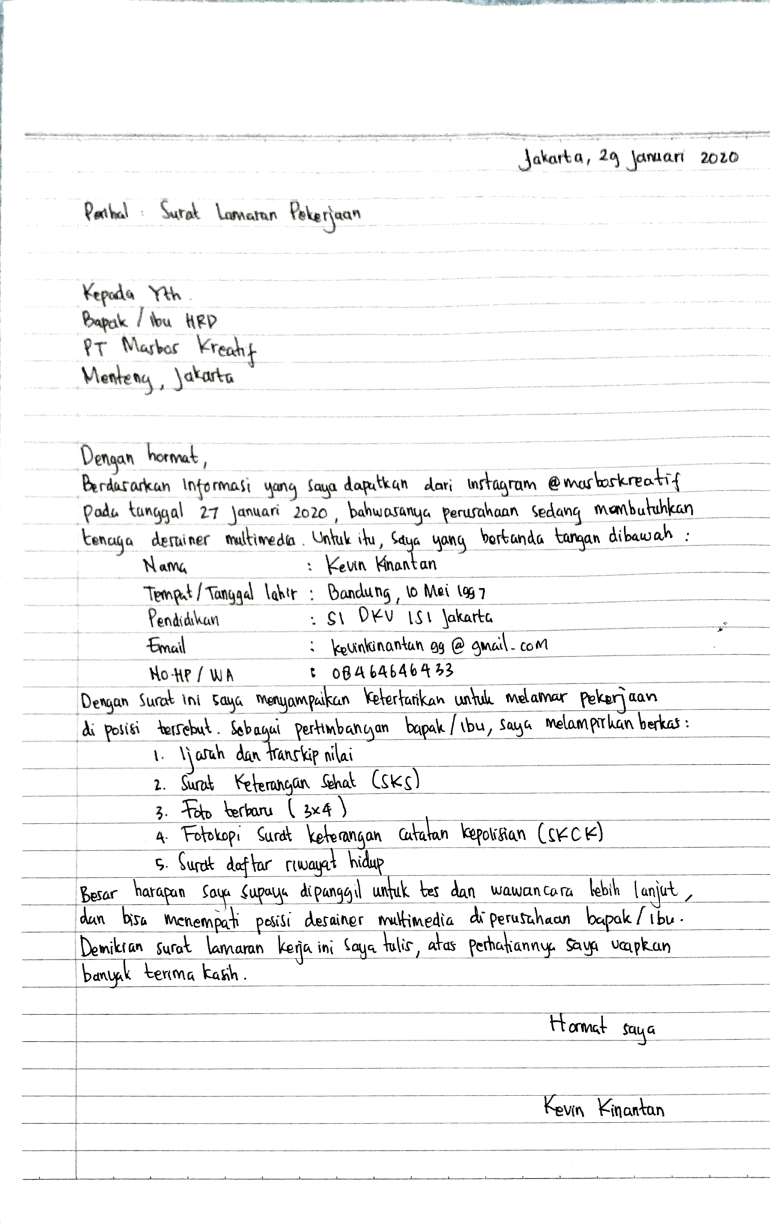 Jakarta, 29 Januari 2020
Perihal : Surat Lamaran Pekerjaan
Kepada Yth.
Bapak / Ibu HRD
PT Marbos Kreatif
Menteng, Jakarta
Dengan hormat,
Berdasarkan informasi yang saya dapatkan dari instagram @marboskreatif
pada tanggal 27 Januari 2020, bahwasanya perusahaan sedang membutuhkan
tenaga desainer multimedia. Untuk itu, saya yang bertanda tangan dibawah :
Nama : Kevin Kinantan
Tempat/Tanggal lahir : Bandung, 10 Mei 1997
Pendidikan : S1 DKV ISI Jakarta
Email : kevinkinantan99@gmail.com
No.HP / WA : 08464646433
Dengan surat ini saya menyampaikan ketertarikan untuk melamar pekerjaan
di posisi tersebut. Sebagai pertimbangan bapak/ibu, saya melampirkan berkas:
1. Ijasah dan transkip nilai
2. Surat Keterangan Sehat (SKS)
3. Foto terbaru (3x4)
4. Fotokopi Surat keterangan catatan kepolisian (SKCK)
5. Surat daftar riwayat hidup
Besar harapan saya supaya dipanggil untuk tes dan wawancara lebih lanjut,
dan bisa menempati posisi desainer multimedia di perusahaan bapak/ibu.
Demikian surat lamaran kerja ini saya tulis, atas perhatiannya saya ucapkan
banyak terima kasih.
Hormat saya
Kevin Kinantan